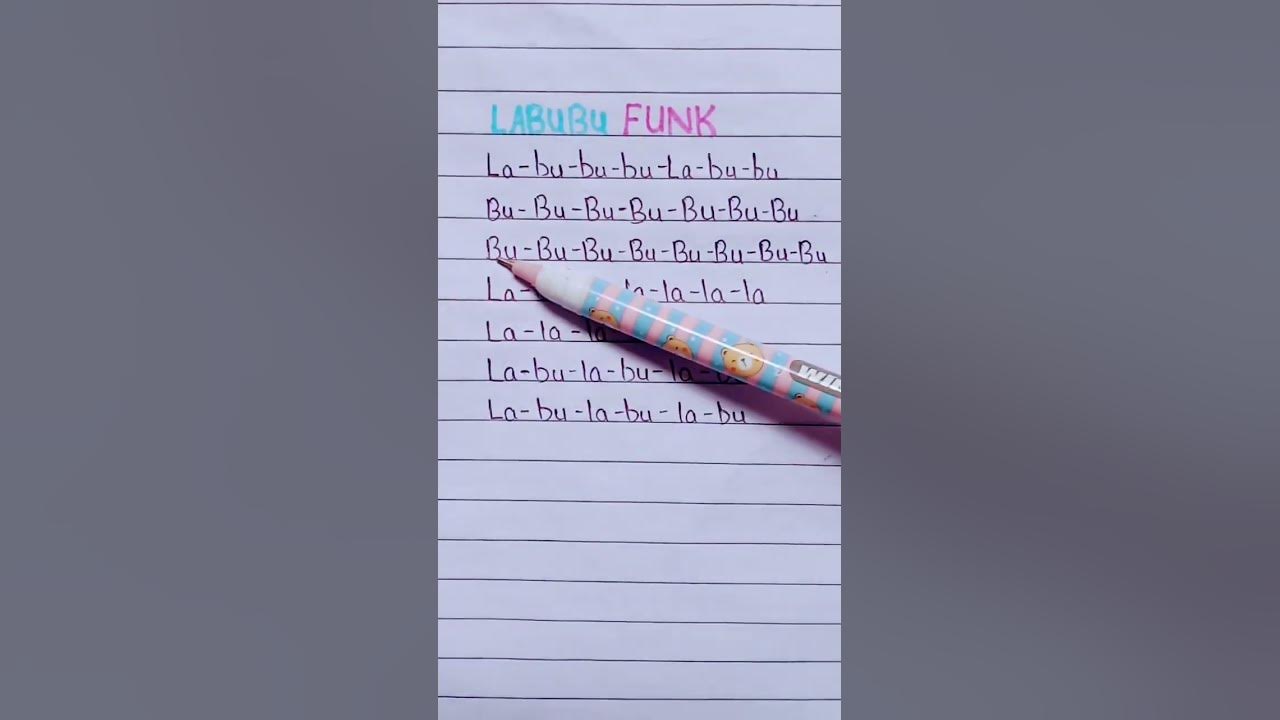 LABUBU FUNK
La-bu-bu-bu-La-bu-bu
Bu-Bu-Bu-Bu-Bu-Bu-Bu
Bu-Bu-Bu-Bu-Bu-Bu-Bu-Bu
La- la-la-la-la
La-la-la
La-bu-la-bu-la-
La-bu-la-bu-la-bu